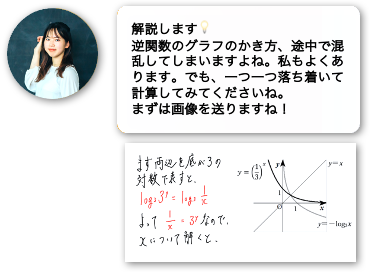 解説します💡
逆関数のグラフのかき方、途中で混
乱してしまいますよね。私もよくあ
ります。でも、一つ一つ落ち着いて
計算してみてくださいね。
まずは画像を送りますね！
まず両辺を底が3の
対数で表すと、
log₃3^y = log₃ 1/x
よって 1/x = 3^y なので、
xについて解くと、
y=(1/3)^x
y
y=x
1
O
1
x
y=-log₃x